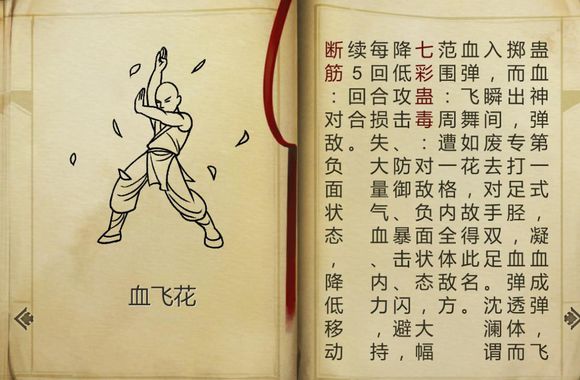 蛊血神弹第一式，凝血成弹，飞
掷而出，专打足胫，血弹透体而
入，瞬间废去对手双足。沈澜谓
血弹飞舞如花，故得此名。
范围：周遭一格内全体敌方。
七彩蛊毒：对敌负面状态，大幅
降低攻击、防御、暴击、闪避，
每回合损失大量气血、内力，持
续5回合。
断筋：对敌负面状态，降低移动
血飞花